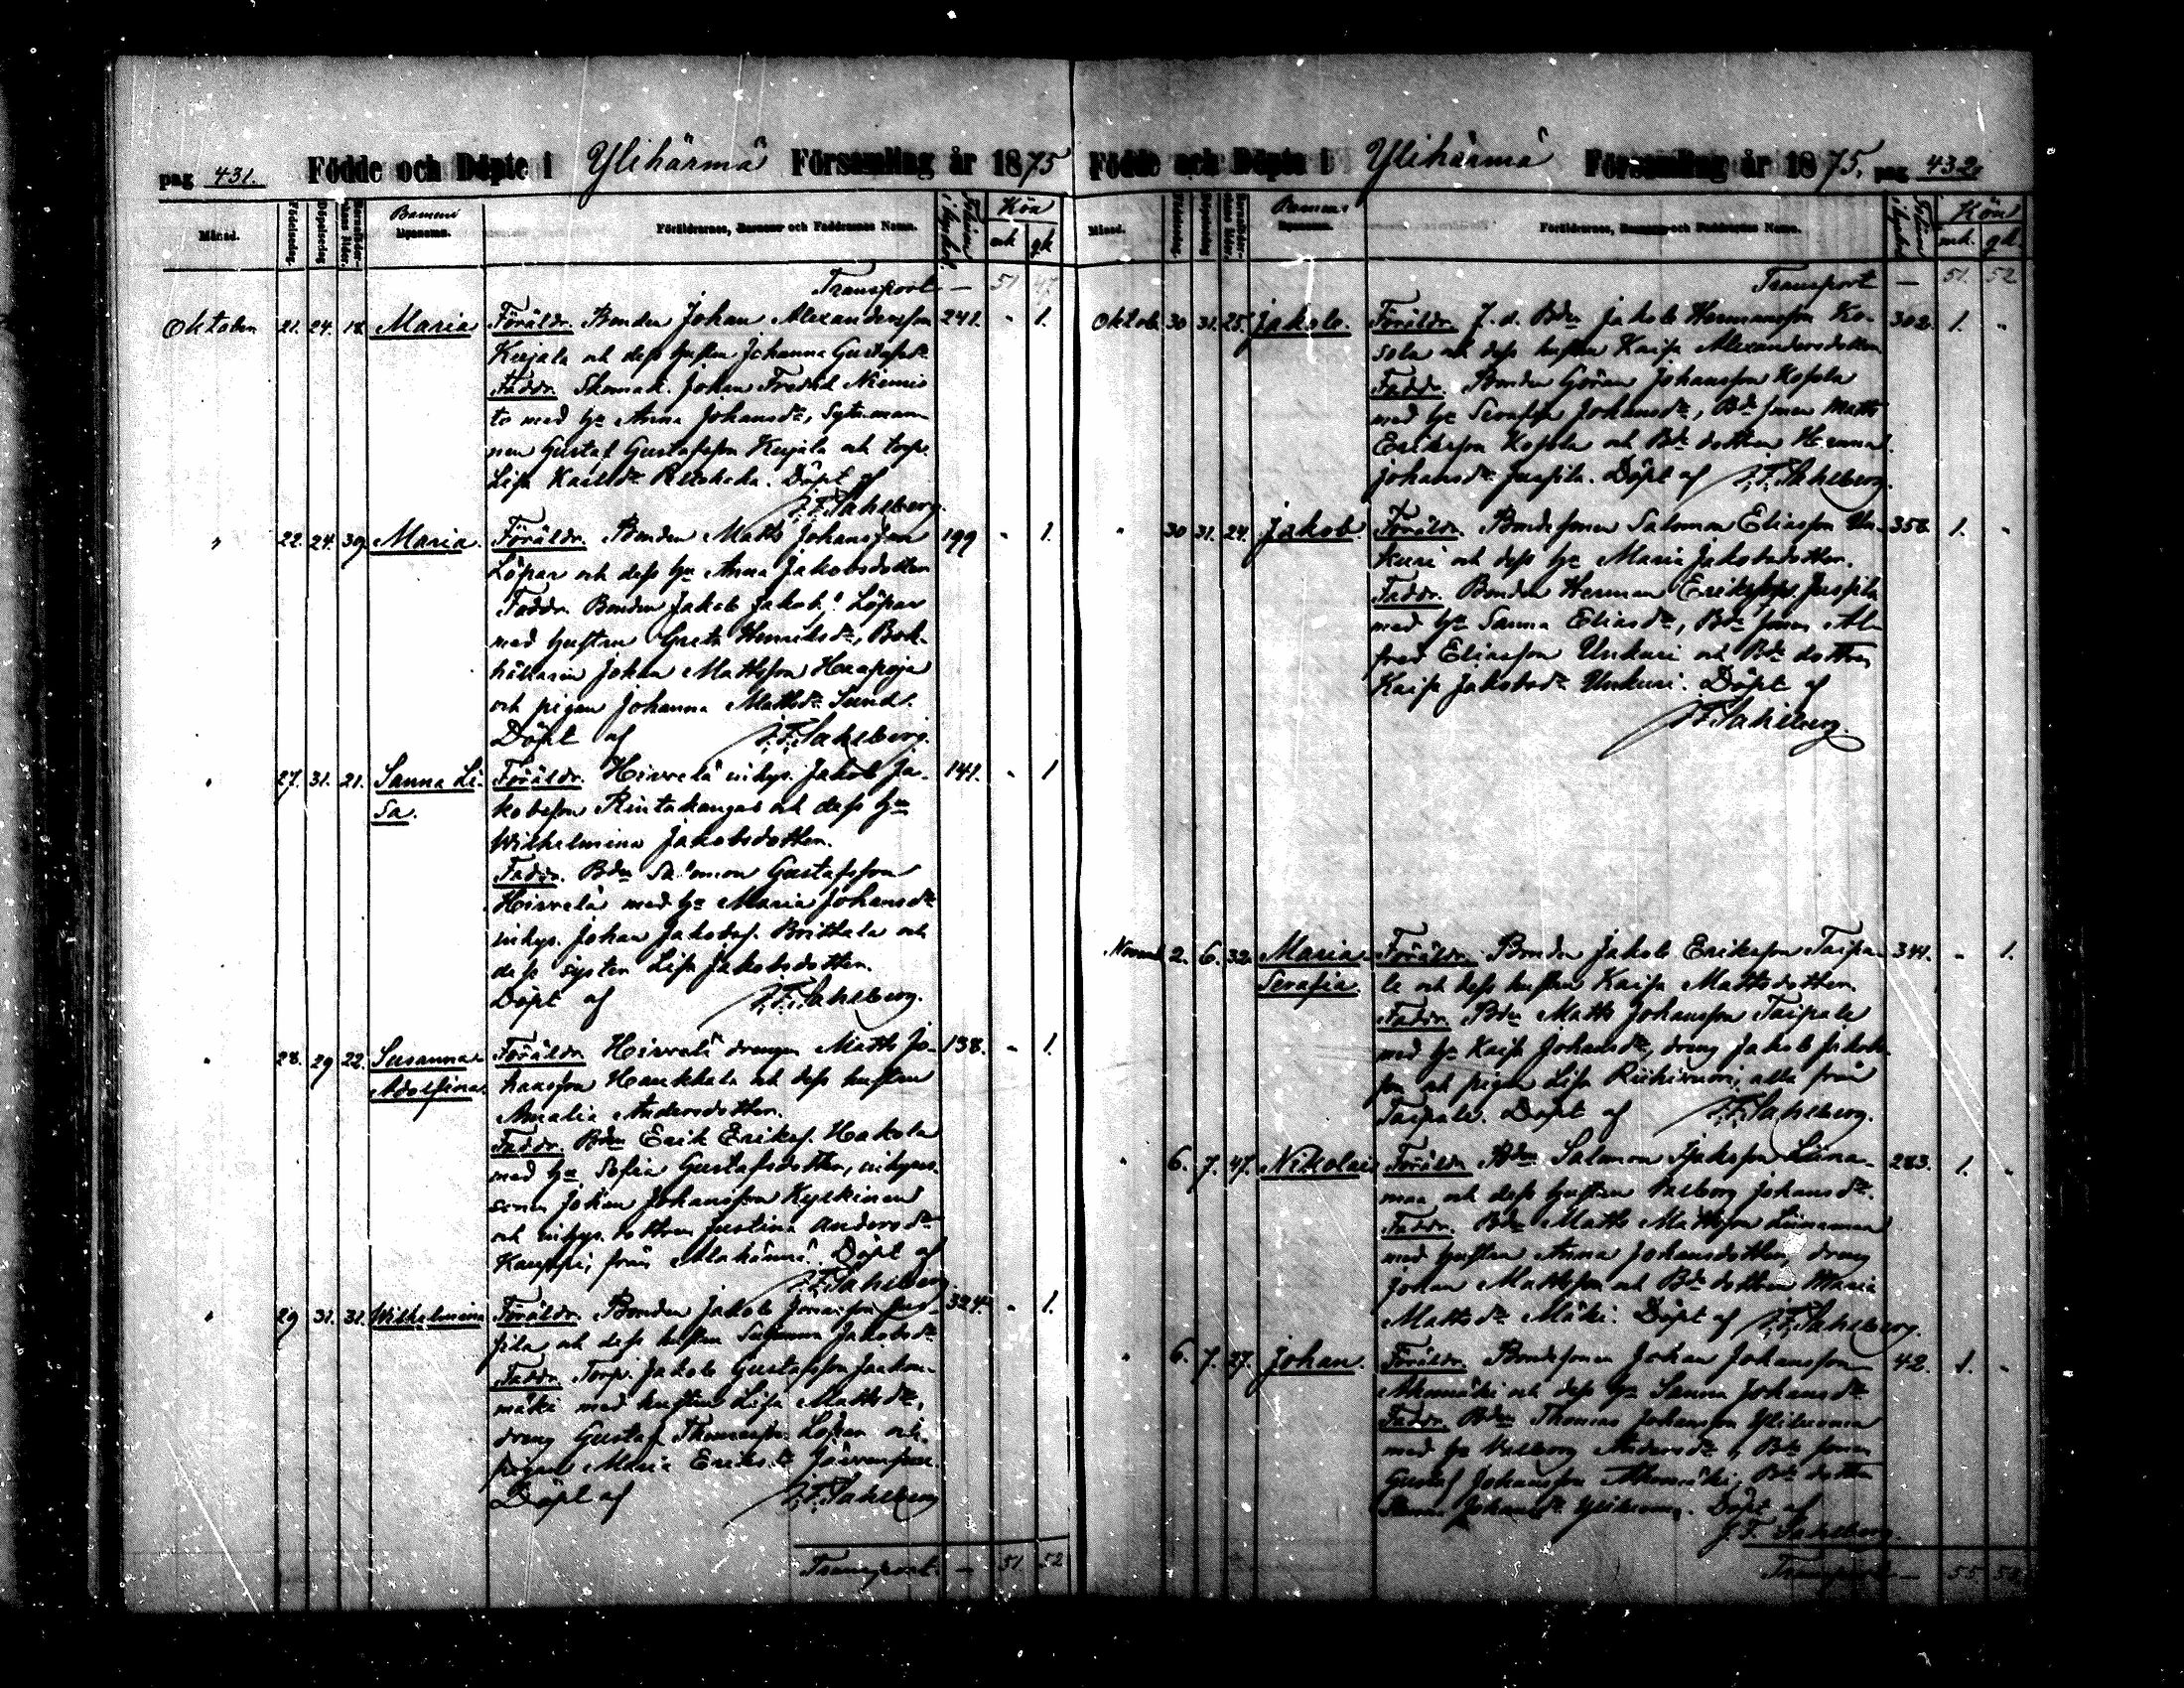 pag 431. Födde och Döpte i Ylihärmä Församling år 1875
Månad. Födelsedag. Döpelsedag Barnens Föräldrarnes, Barnens och Faddrarnes Namn. Kön
mk gk
Transport — 51 47
Oktober 21. 24. 18. Maria Föräldr. Bonden Johan Alexandersson 241. " 1.
Kujala och dess hustru Johanna Gustafsdr
Faddr. Skomak. Johan Fredrik Niemis
to med hu Anna Johansdr, Sytn.man
nen Gustaf Gustafsson Kujala och torp.
Lisa Karlsdr. Döpt af
J. F. Sahlberg.
" 22. 24. 39. Maria. Föräldr. Bonden Matts Johansson 199 " 1.
Löpar och dess hu Anna Jakobsdotter
Faddr. Bonden Jakob Jakobs. Löpar
med hustru Greta Henriksdr, Bok-
hållaren Johan Mattsson Haapoja
och pigan Johanna Mattsdr Sund.
Döpt af J. F. Sahlberg.
" 27. 31. 21. Sanna Li- Föräldr. Hirvelä inhys. Jakob Ja- 141. " 1
sa. kobsson Rintakangas och dess hu
Wilhelmina Jakobsdotter.
Faddr. Bdn Salomon Gustafsson
Hirvelä med hu Maria Johansdr
inhys. Johan Jakobss. Brittala och
dess syster Lisa Jakobsdotter.
Döpt af J. F. Sahlberg.
" 28. 29 22. Susanna Föräldr. Hirvelä drengen Matts Jo- 138. " 1.
Adolfina. hansson Haukkala och dess hustru
Amalia Andersdotter.
Faddr. Bdn Erik Eriks. Hakola
med hu Sofia Gustafsdotter, inhyses
sonen Johan Johansson Kyykinen
och inhys. dottren Justina Andersdr
Kauppi, från Alahärmä. Döpt af
J. F. Sahlberg.
" 29 31. 31. Wilhelmina Föräldr. Bonden Jakob Jonasson Jus- 324. " 1.
sila och dess hustru Susanna Jakobsdr
Faddr. Torp. Jakob Gustafsson Jaakon-
mäki med hustru Lisa Mattsdr,
dreng Gustaf Thomasson Löpar och
pigan Maria Eriksdr Järvenpää.
Döpt af J. F. Sahlberg
Transport. — 51 52
Födde och Döpte i Ylihärmä Församling år 1875. pag 432.
Månad. Föräldrarnes, Barnens och Faddrarnes Namn. Kön
mk. qk.
Transport — 51. 52
Oktob. 30 31. 25. Jakob. Föräldr. F. d. Bdn Jakob Hermansson Ko- 302. 1. "
sola och dess hustru Kaisa Alexandersdotter
Faddr. Bonden Göran Johansson Kosola
med hu Serafia Johansdr, Bde sonen Matts
Eriksson Kosola och Bde dottren Hanna
Johansdr Jussila. Döpt af J. F. Sahlberg.
" 30 31. 24. Jakob. Föräldr. Bondesonen Salomon Eliasson Un- 358. 1. "
kuri och dess hu Maria Jakobsdotter.
Faddr. Bonden Herman Eriksson Jussila
med hu Sanna Eliasdr, Bde sonen Al-
fred Eliasson Unkuri och Bde dottren
Kaisa Jakobsdr Unkuri. Döpt af
J. F. Sahlberg.
Novemb 2. 6. 32. Maria Föräldr. Bonden Jakob Eriksson Taipa- 341. " 1.
Serafia. le och dess hustru Kaisa Mattsdotter.
Faddr. Bdn Matts Johansson Taipale
med hu Kaisa Johansdr, dreng Jakob Jakobs-
son och pigan Lisa Riihivuori, alla från
Taipale. Döpt af J. F. Sahlberg.
" 6. 7. 47. Nikolai Föräldr. Bdn Salomon Liina- 283. 1. "
maa och dess hustru Valborg Johansdr.
Faddr. Bdn Matts Mattsson Liinamaa
med hustru Anna Johansdotter, dreng
Johan Mattsson och Bde dottren Maria
Mattsdr Mäki. Döpt af J. F. Sahlberg.
" 6. 7. 27. Johan. Föräldr. Bondesonen Johan Johansson 42. 1. "
och dess hu Sanna Johansdr
Faddr. Bdn Thomas Johansson
med hu Valborg Andersdr, Bde sonen
Gustaf Johansson Bde dottren
Johansdr. Döpt af
J. F. Sahlberg.
Transport — 55 53